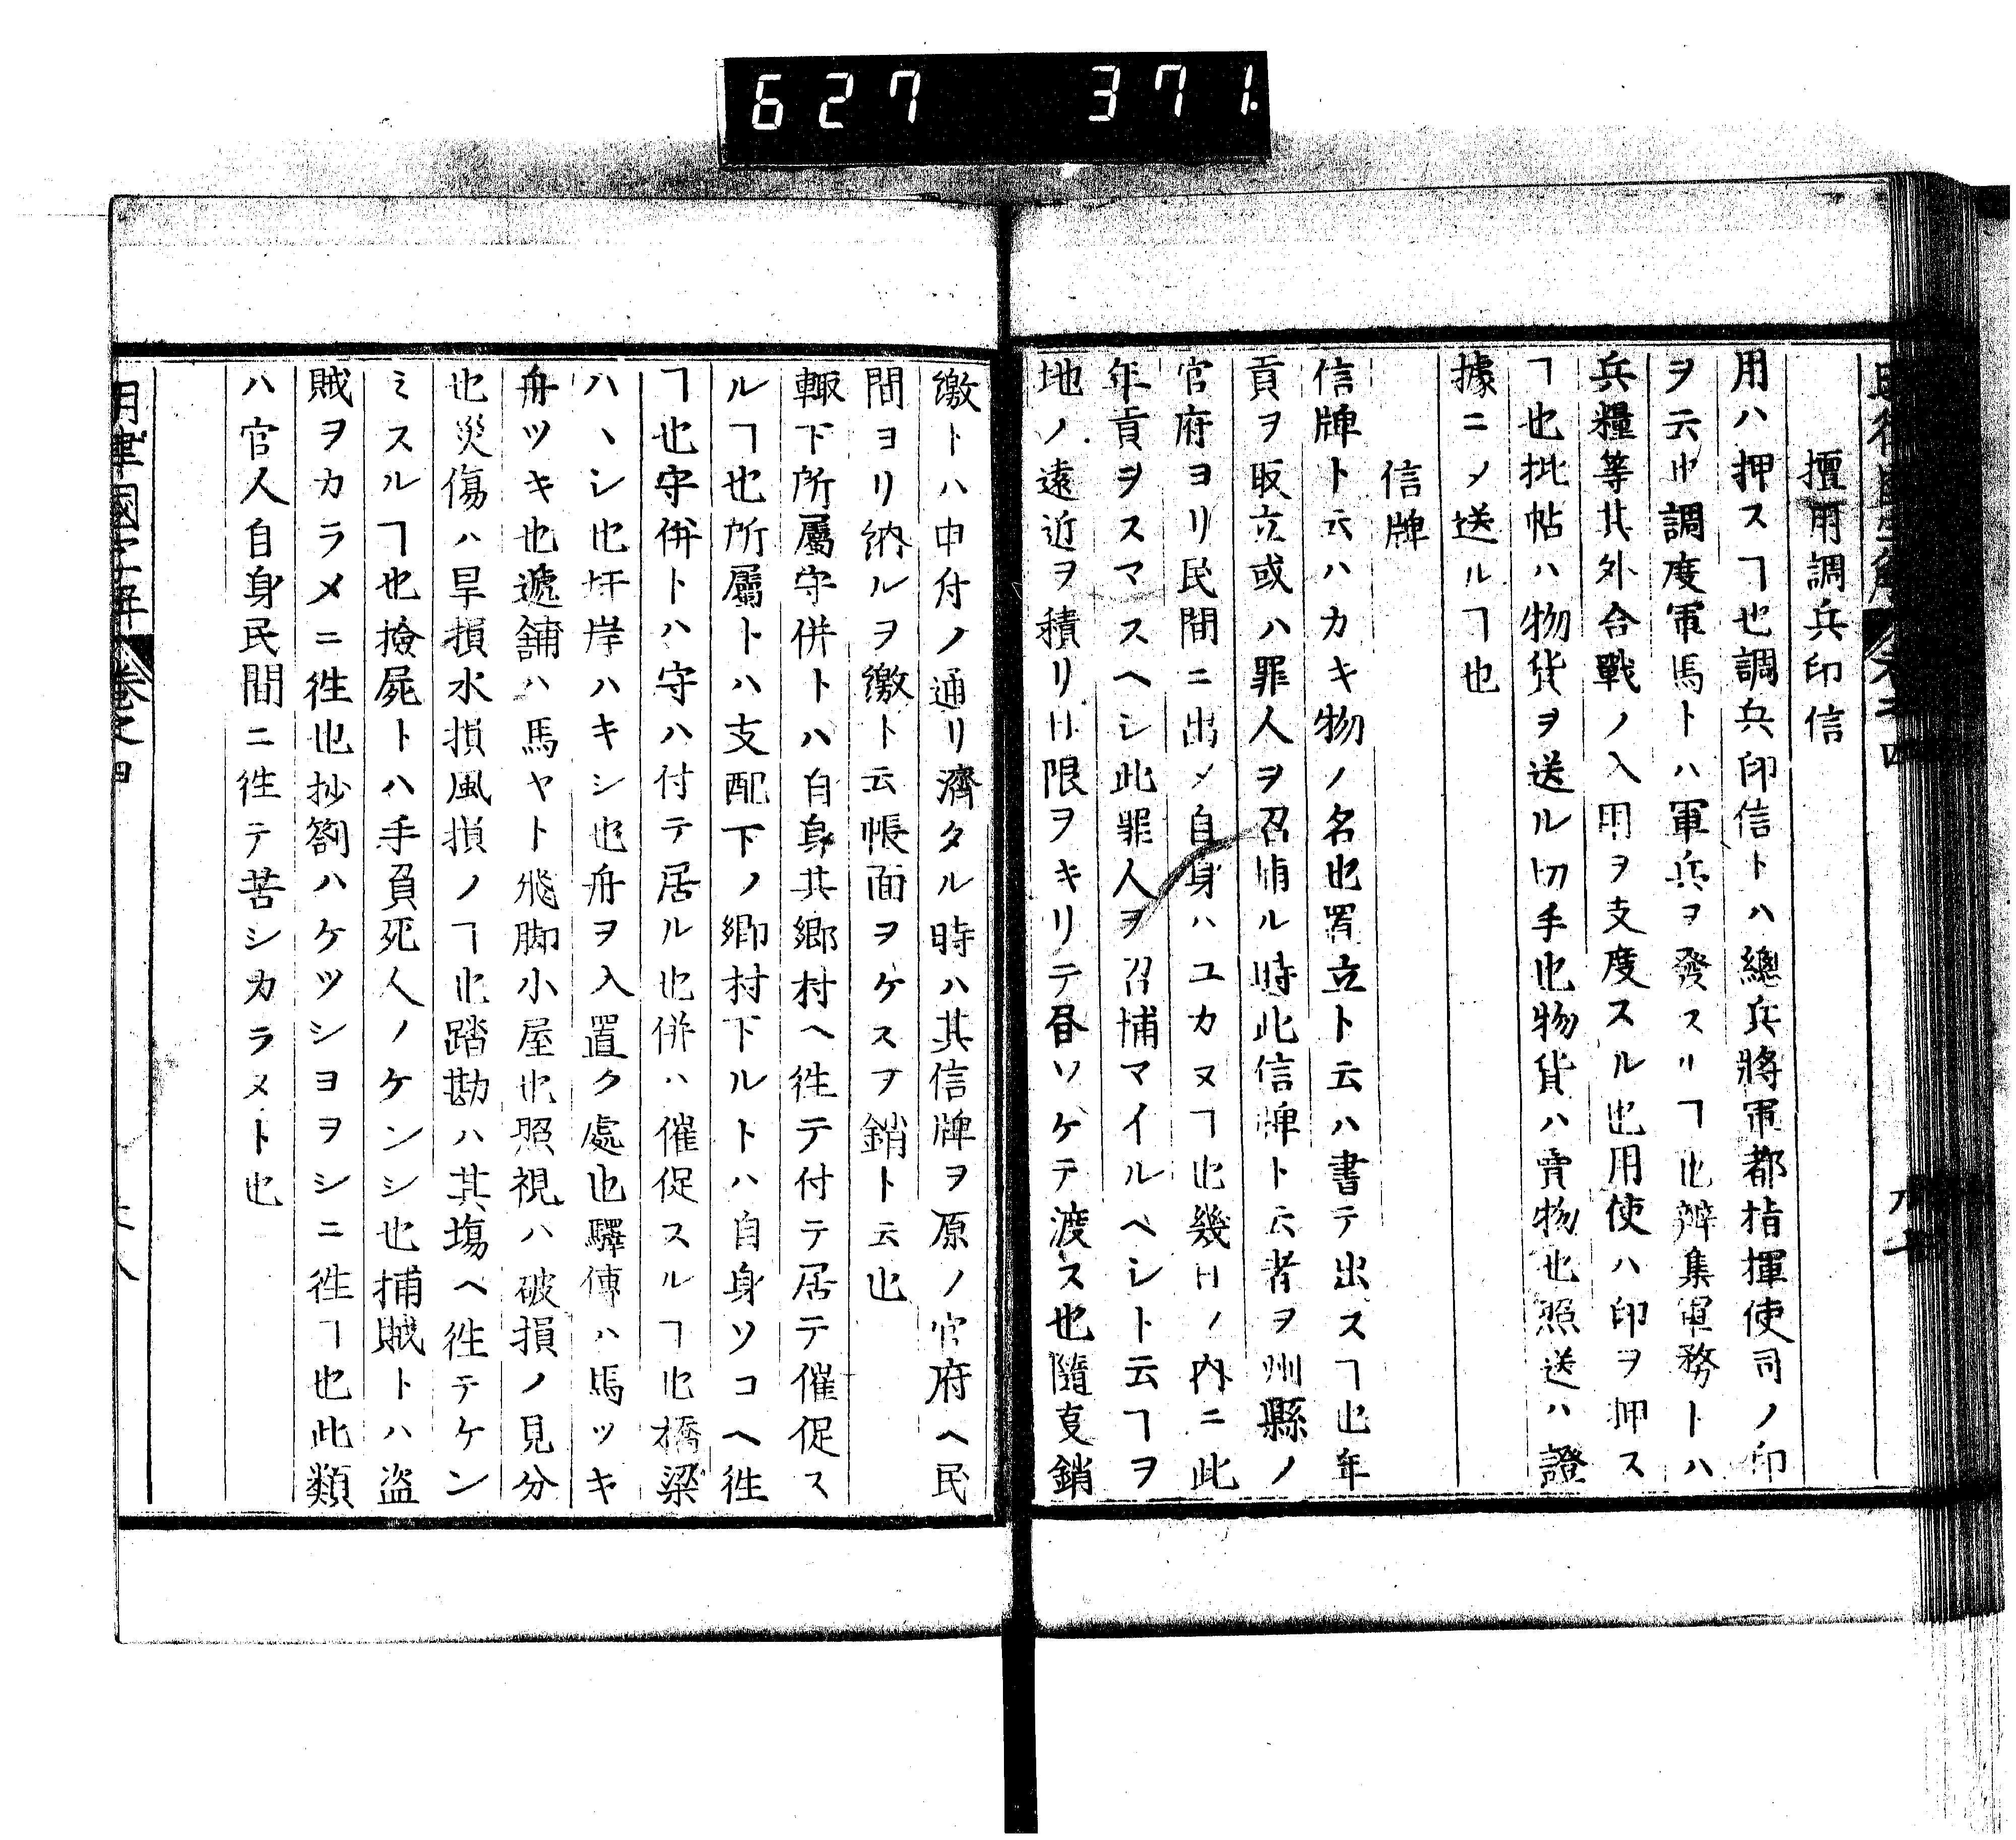 627 371
擅用調兵印信
用ハ押スヿ也調兵印信トハ總兵將軍都指揮使司ノ印
ヲ云也調度軍馬トハ軍兵ヲ發スルヿ也辨集軍務トハ
兵糧等其外合戰ノ入用ヲ支度スル也用使ハ印ヲ押ス
ヿ也批帖ハ物貨ヲ送ル切手也物貨ハ賣物也照送ハ證
據ニメ送ルヿ也
信牌
信牌ト云ハカキ物ノ名也置立ト云ハ書テ出スヿ也年
貢ヲ取立或ハ罪人ヲ召捕ル時此信牌ト云者ヲ州縣ノ
官府ヨリ民間ニ出メ自身ハユカヌヿ也幾日ノ内ニ此
年貢ヲスマスヘシ此罪人ヲ召捕マイルヘシト云ヿヲ
地ノ遠近ヲ積リ日限ヲキリテ昏ソケテ渡ス也隨支銷
繳トハ申付ノ通リ濟タル時ハ其信牌ヲ原ノ官府ヘ民
間ヨリ納ルヲ繳ト云帳面ヲケスヲ銷ト云也
輙下所屬守併トハ自身其郷村ヘ徃テ付テ居テ催促ス
ルヿ也所屬トハ支配下ノ郷村下ルトハ自身ソコヘ徃
ヿ也守併トハ守ハ付テ居ル也併ハ催促スルヿ也橋梁
ハヽシ也圩岸ハキシ也舟ヲ入置ク處也驛傳ハ馬ツキ
舟ツキ也遞舖ハ馬ヤト飛脚小屋也照視ハ破損ノ見分
也災傷ハ旱損水損風損ノヿ也踏勘ハ其塲ヘ徃テケン
ミスルヿ也撿屍トハ手負死人ノケンシ也捕賊トハ盗
賊ヲカラメニ徃也抄劄ハケツシヨヲシニ徃ヿ也此類
ハ官人自身民間ニ徃テ苦シカラヌト也
明律國字解 卷之四